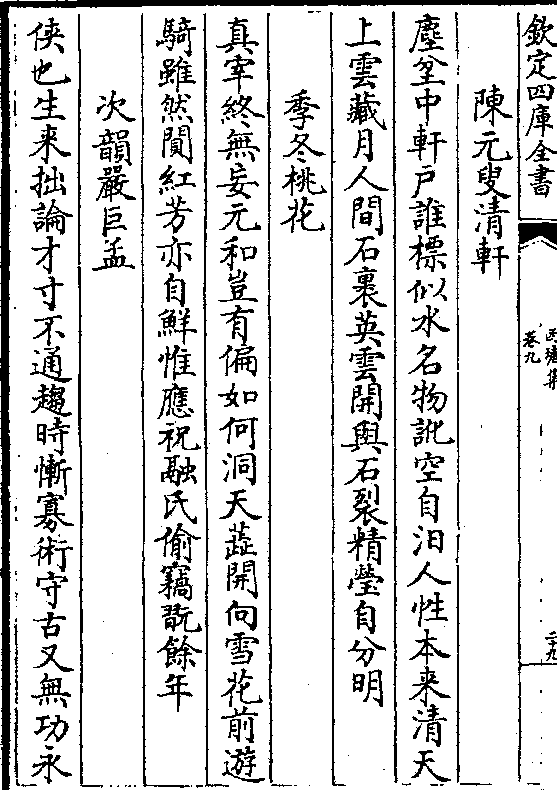 欽定四庫全書
西塘集
卷九
陳元叟清軒
塵坌中軒戸誰標似水名物訛空自汨人性本来清天
上雲藏月人間石裏英雲開與石裂精瑩自分明
季冬桃花
真宰終無妄元和豈有偏如何洞天蕋開向雪花前遊
騎雖然閴紅芳亦自鮮惟應祝融氏偷竊翫餘年
次韻嚴巨孟
俠也生来拙論才寸不通趨時慚寡術守古又無功永